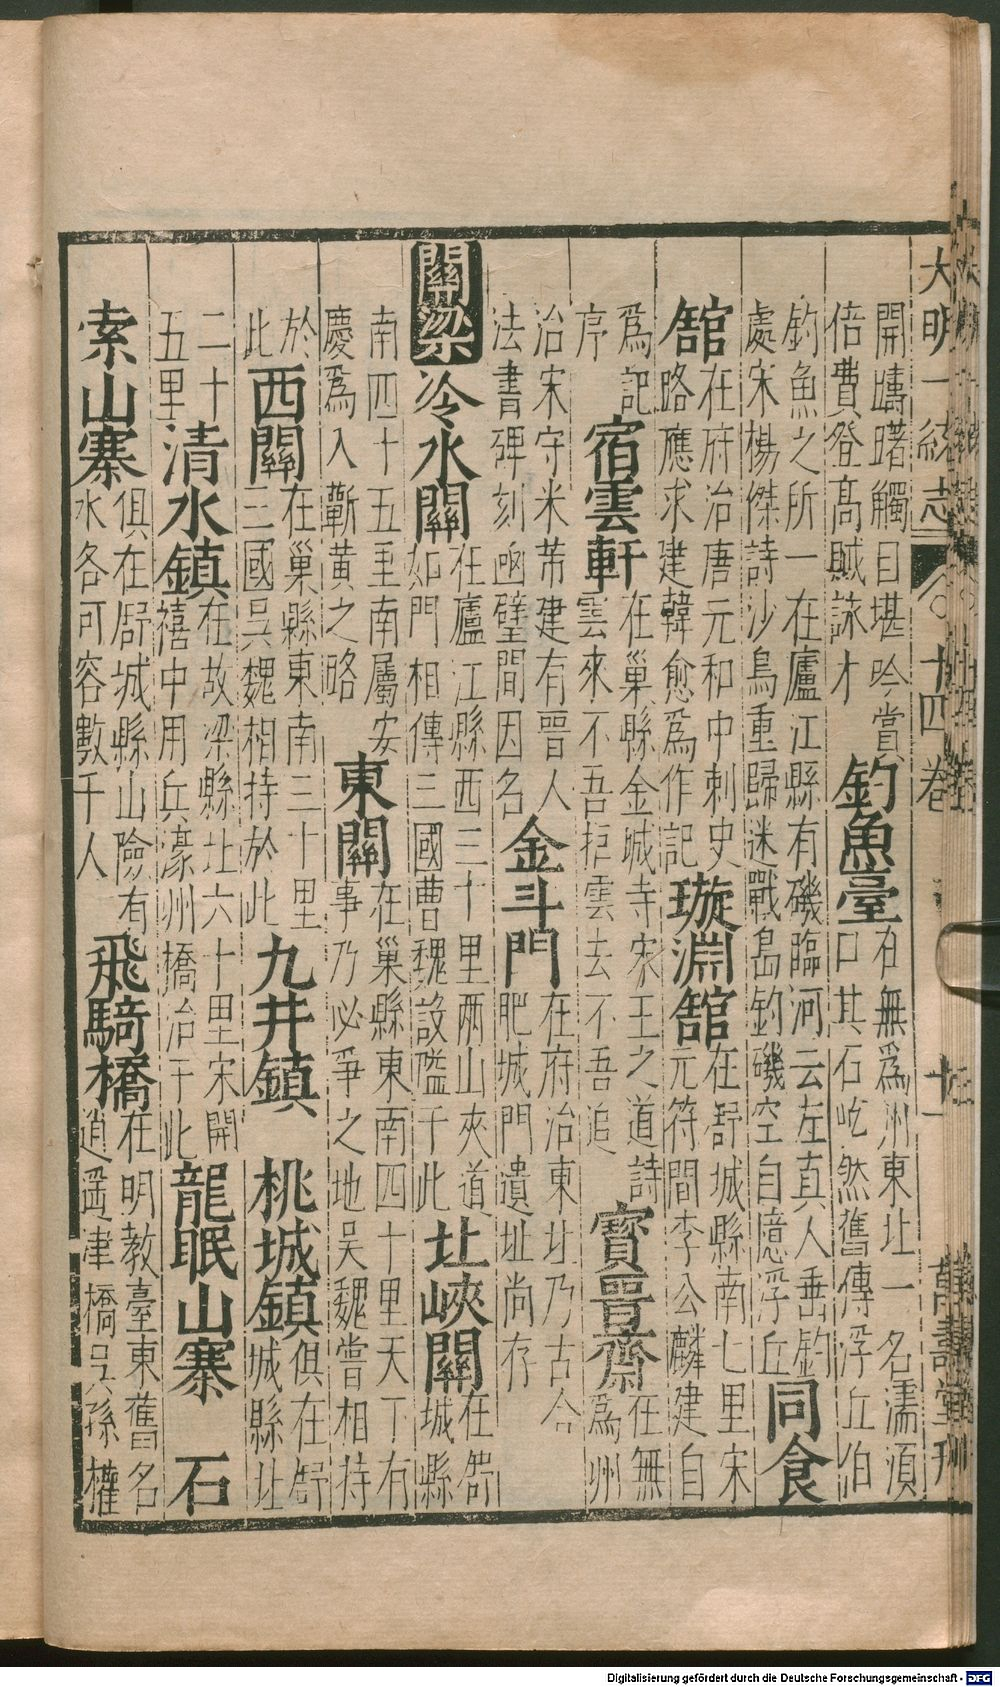 大明一統志 十四卷 萬壽堂刊
開疇曙觸目堪吟賞
倍費登高賦詠才
釣魚臺
在無為州東北一名濡須
口其石屹然舊傳浮丘伯
釣魚之所一在廬江縣有磯臨河云左真人垂釣
處宋楊傑詩沙鳥重歸迷戰島釣磯空自憶浮丘
同食
館
在府治唐元和中刺史
路應求建韓愈為作記
璇淵館
在舒城縣南七里宋
元符間李公麟建自
為記
序
宿雲軒
在巢縣金城寺宋王之道詩
雲來不吾拒雲去不吾追
寶晉齋
在無
為州
治宋守米芾建有晉人
法書碑刻函壁間因名
金斗門
在府治東北乃古合
肥城門遺址尚存
關梁
冷水關
在廬江縣西三十里兩山夾道
如門相傳三國曹魏設隘于此
北峽關
在舒
城縣
南四十五里南屬安
慶為入蘄黃之路
東關
在巢縣東南四十里天下有
事乃必爭之地吳魏嘗相持
於
此
西關
在巢縣東南三十里
三國吳魏相持於此
九井鎮
桃城鎮
俱在舒
城縣北
二十
五里
清水鎮
在故梁縣北六十里宋開
禧中用兵濠州橋治于此
龍眠山寨
石
索山寨
俱在舒城縣山險有
水各可容數千人
飛騎橋
在明教臺東舊名
逍遙津橋吳孫權
Digitalisierung gefördert durch die Deutsche Forschungsgemeinschaft - DFG